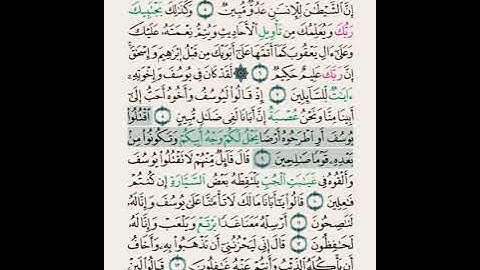 إِنَّ الشَّيْطَٰنَ لِلْإِنسَٰنِ عَدُوٌّ مُّبِينٌ ۝٥ وَكَذَٰلِكَ يَجْتَبِيكَ
رَبُّكَ وَيُعَلِّمُكَ مِن تَأْوِيلِ الْأَحَادِيثِ وَيُتِمُّ نِعْمَتَهُۥ عَلَيْكَ
وَعَلَىٰٓ ءَالِ يَعْقُوبَ كَمَآ أَتَمَّهَا عَلَىٰٓ أَبَوَيْكَ مِن قَبْلُ إِبْرَٰهِيمَ وَإِسْحَٰقَ ۚ
إِنَّ رَبَّكَ عَلِيمٌ حَكِيمٌ ۝٦ ۞ لَّقَدْ كَانَ فِي يُوسُفَ وَإِخْوَتِهِۦٓ
ءَايَٰتٌ لِّلسَّآئِلِينَ ۝٧ إِذْ قَالُوا۟ لَيُوسُفُ وَأَخُوهُ أَحَبُّ إِلَىٰٓ
أَبِينَا مِنَّا وَنَحْنُ عُصْبَةٌ إِنَّ أَبَانَا لَفِي ضَلَٰلٍ مُّبِينٍ ۝٨ اقْتُلُوا۟
يُوسُفَ أَوِ اطْرَحُوهُ أَرْضًا يَخْلُ لَكُمْ وَجْهُ أَبِيكُمْ وَتَكُونُوا۟ مِنۢ
بَعْدِهِۦ قَوْمًا صَٰلِحِينَ ۝٩ قَالَ قَآئِلٌ مِّنْهُمْ لَا تَقْتُلُوا۟ يُوسُفَ
وَأَلْقُوهُ فِي غَيَٰبَتِ الْجُبِّ يَلْتَقِطْهُ بَعْضُ السَّيَّارَةِ إِن كُنتُمْ
فَٰعِلِينَ ۝١٠ قَالُوا۟ يَٰٓأَبَانَا مَا لَكَ لَا تَأْمَ۫نَّا عَلَىٰ يُوسُفَ وَإِنَّا لَهُۥ
لَنَٰصِحُونَ ۝١١ أَرْسِلْهُ مَعَنَا غَدًا يَرْتَعْ وَيَلْعَبْ وَإِنَّا لَهُۥ
لَحَٰفِظُونَ ۝١٢ قَالَ إِنِّي لَيَحْزُنُنِيٓ أَن تَذْهَبُوا۟ بِهِۦ وَأَخَافُ
أَن يَأْكُلَهُ الذِّئْبُ وَأَنتُمْ عَنْهُ غَٰفِلُونَ ۝١٣ قَالُوا۟ لَئِنْ